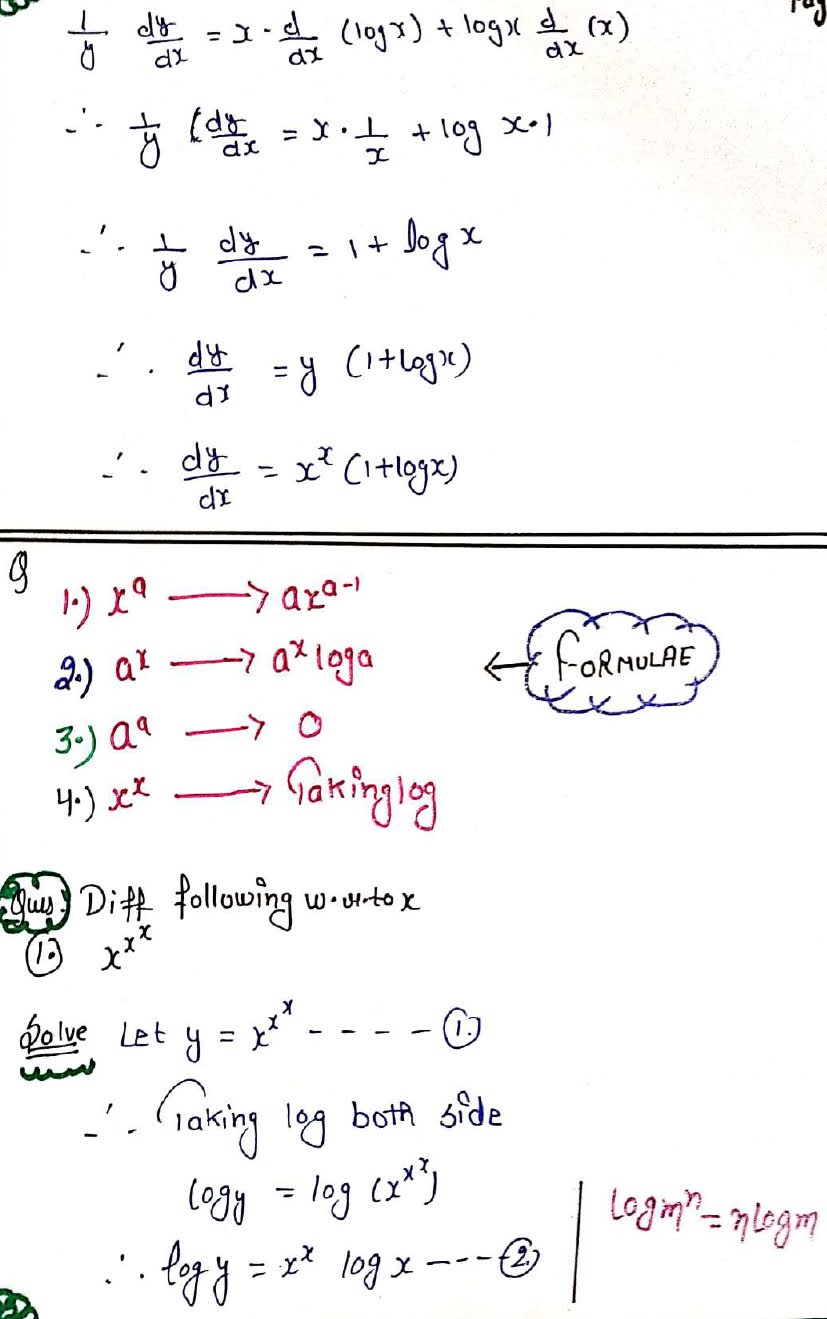 1/y dy/dx = x · d/dx (log x) + log x d/dx (x)
∴ 1/y (dy/dx = x · 1/x + log x · 1
∴ 1/y dy/dx = 1 + log x
∴ dy/dx = y (1+log x)
∴ dy/dx = x^x (1+log x)
1.) x^a ⟶ ax^(a-1)
2.) a^x ⟶ a^x log a
3.) a^a ⟶ 0
4.) x^x ⟶ Taking log
← FORMULAE
Ques. Diff following w.r.to x
1. x^x^x
Solve Let y = x^x^x - - - - 1.
∴ Taking log both side
log y = log (x^x^x)
∴ log y = x^x log x - - - 2.
log m^n = n log m